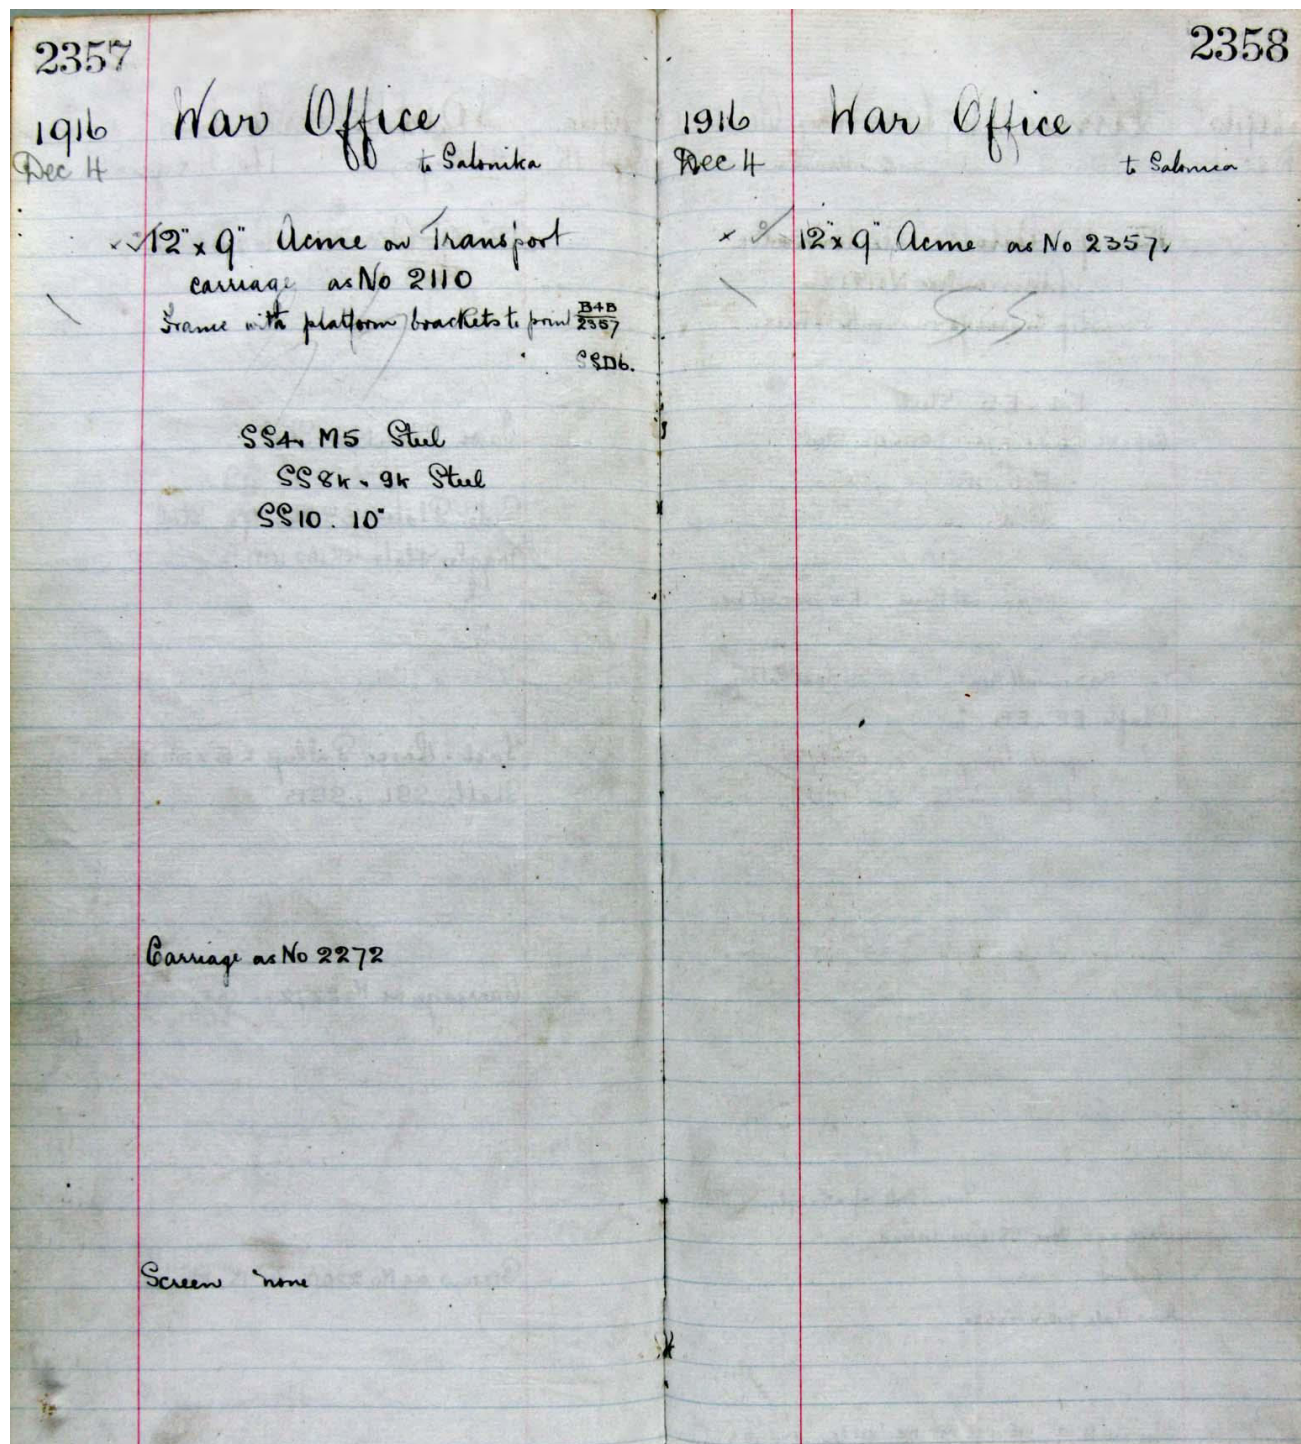 2357
1916 War Office
Dec 4 to Salonika
12" x 9" Acme on Transport
carriage as No 2110
Frame with platform brackets to print B4B/2357
SSD6.
SS4. M5 Steel
SS8K. 9K Steel
SS10. 10"
Carriage as No 2272
Screen none
2358
1916 War Office
Dec 4 to Salonica
12" x 9" Acme as No 2357.